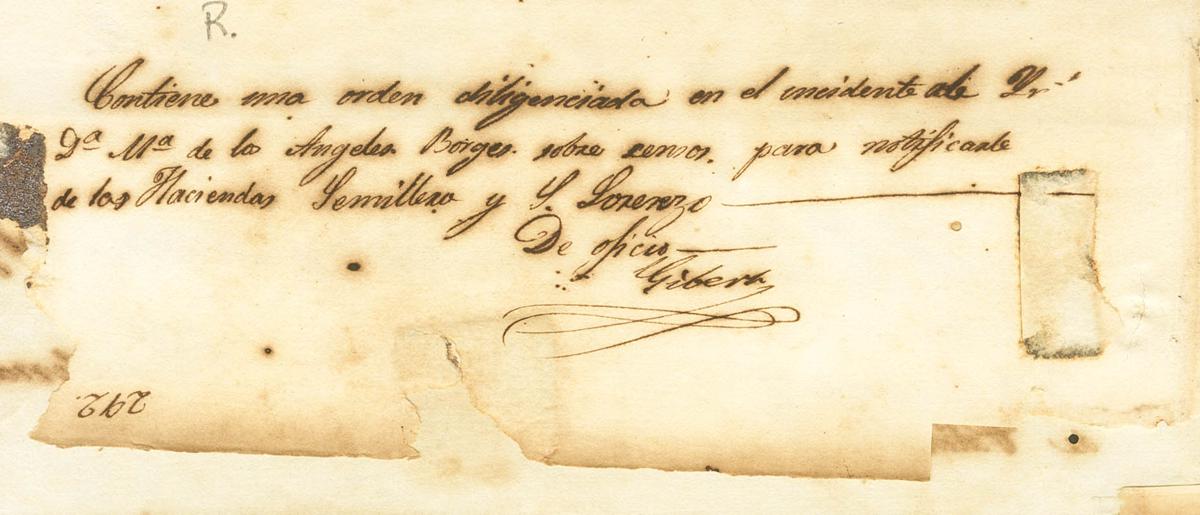 R.
Contiene una orden diligenciada en el incidente de
Dª Mª de los Angeles Borges sobre censos. para notificarle
de las Haciendas Semillero y S. Lorenzo
De oficio
Gibert
242.